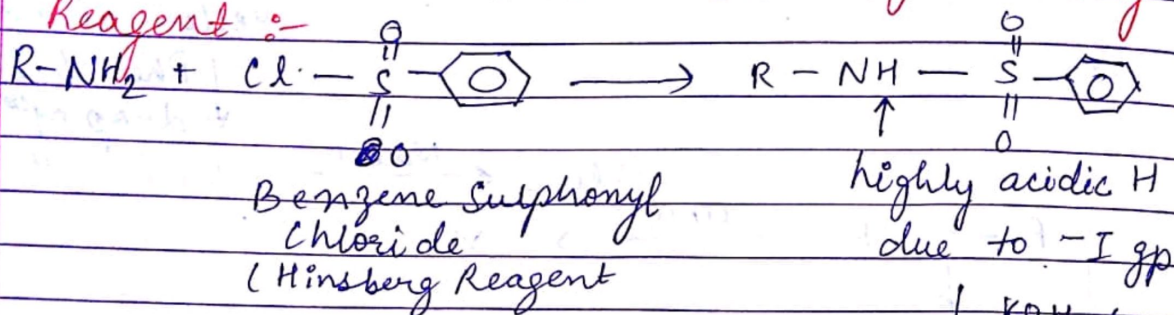 Reagent :-
R-NH2 + Cl - S - ⟶ R - NH - S -
O
O
O
O
Benzene Sulphonyl
Chloride
(Hinsberg Reagent
highly acidic H
due to -I gp
KOH